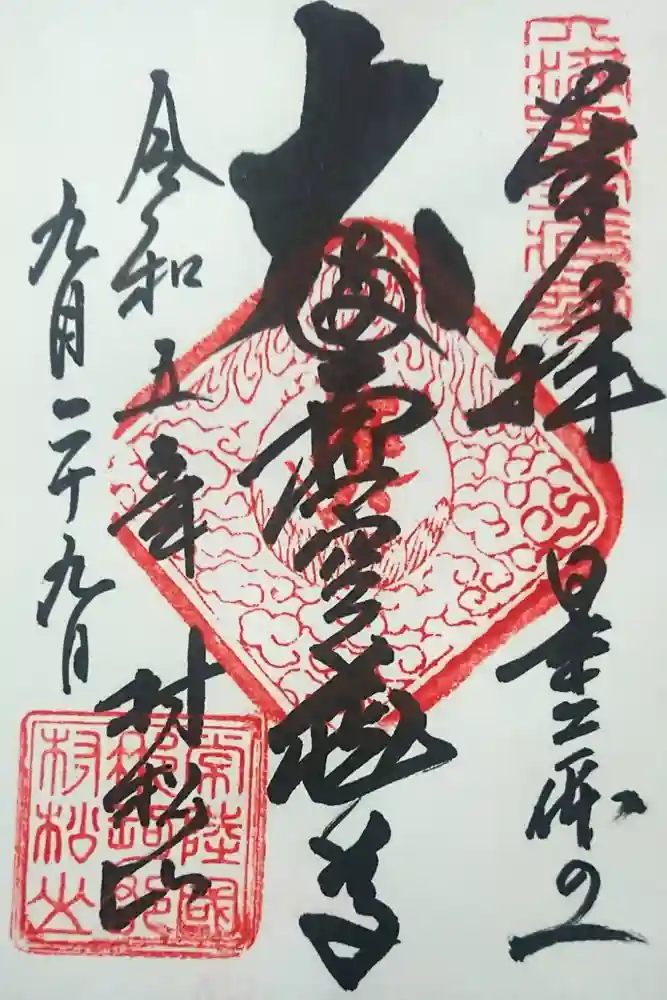 奉拝
日本三体の一
大満虚空蔵尊
令和五年
村松山
九月二十九日
常陸國
村松山